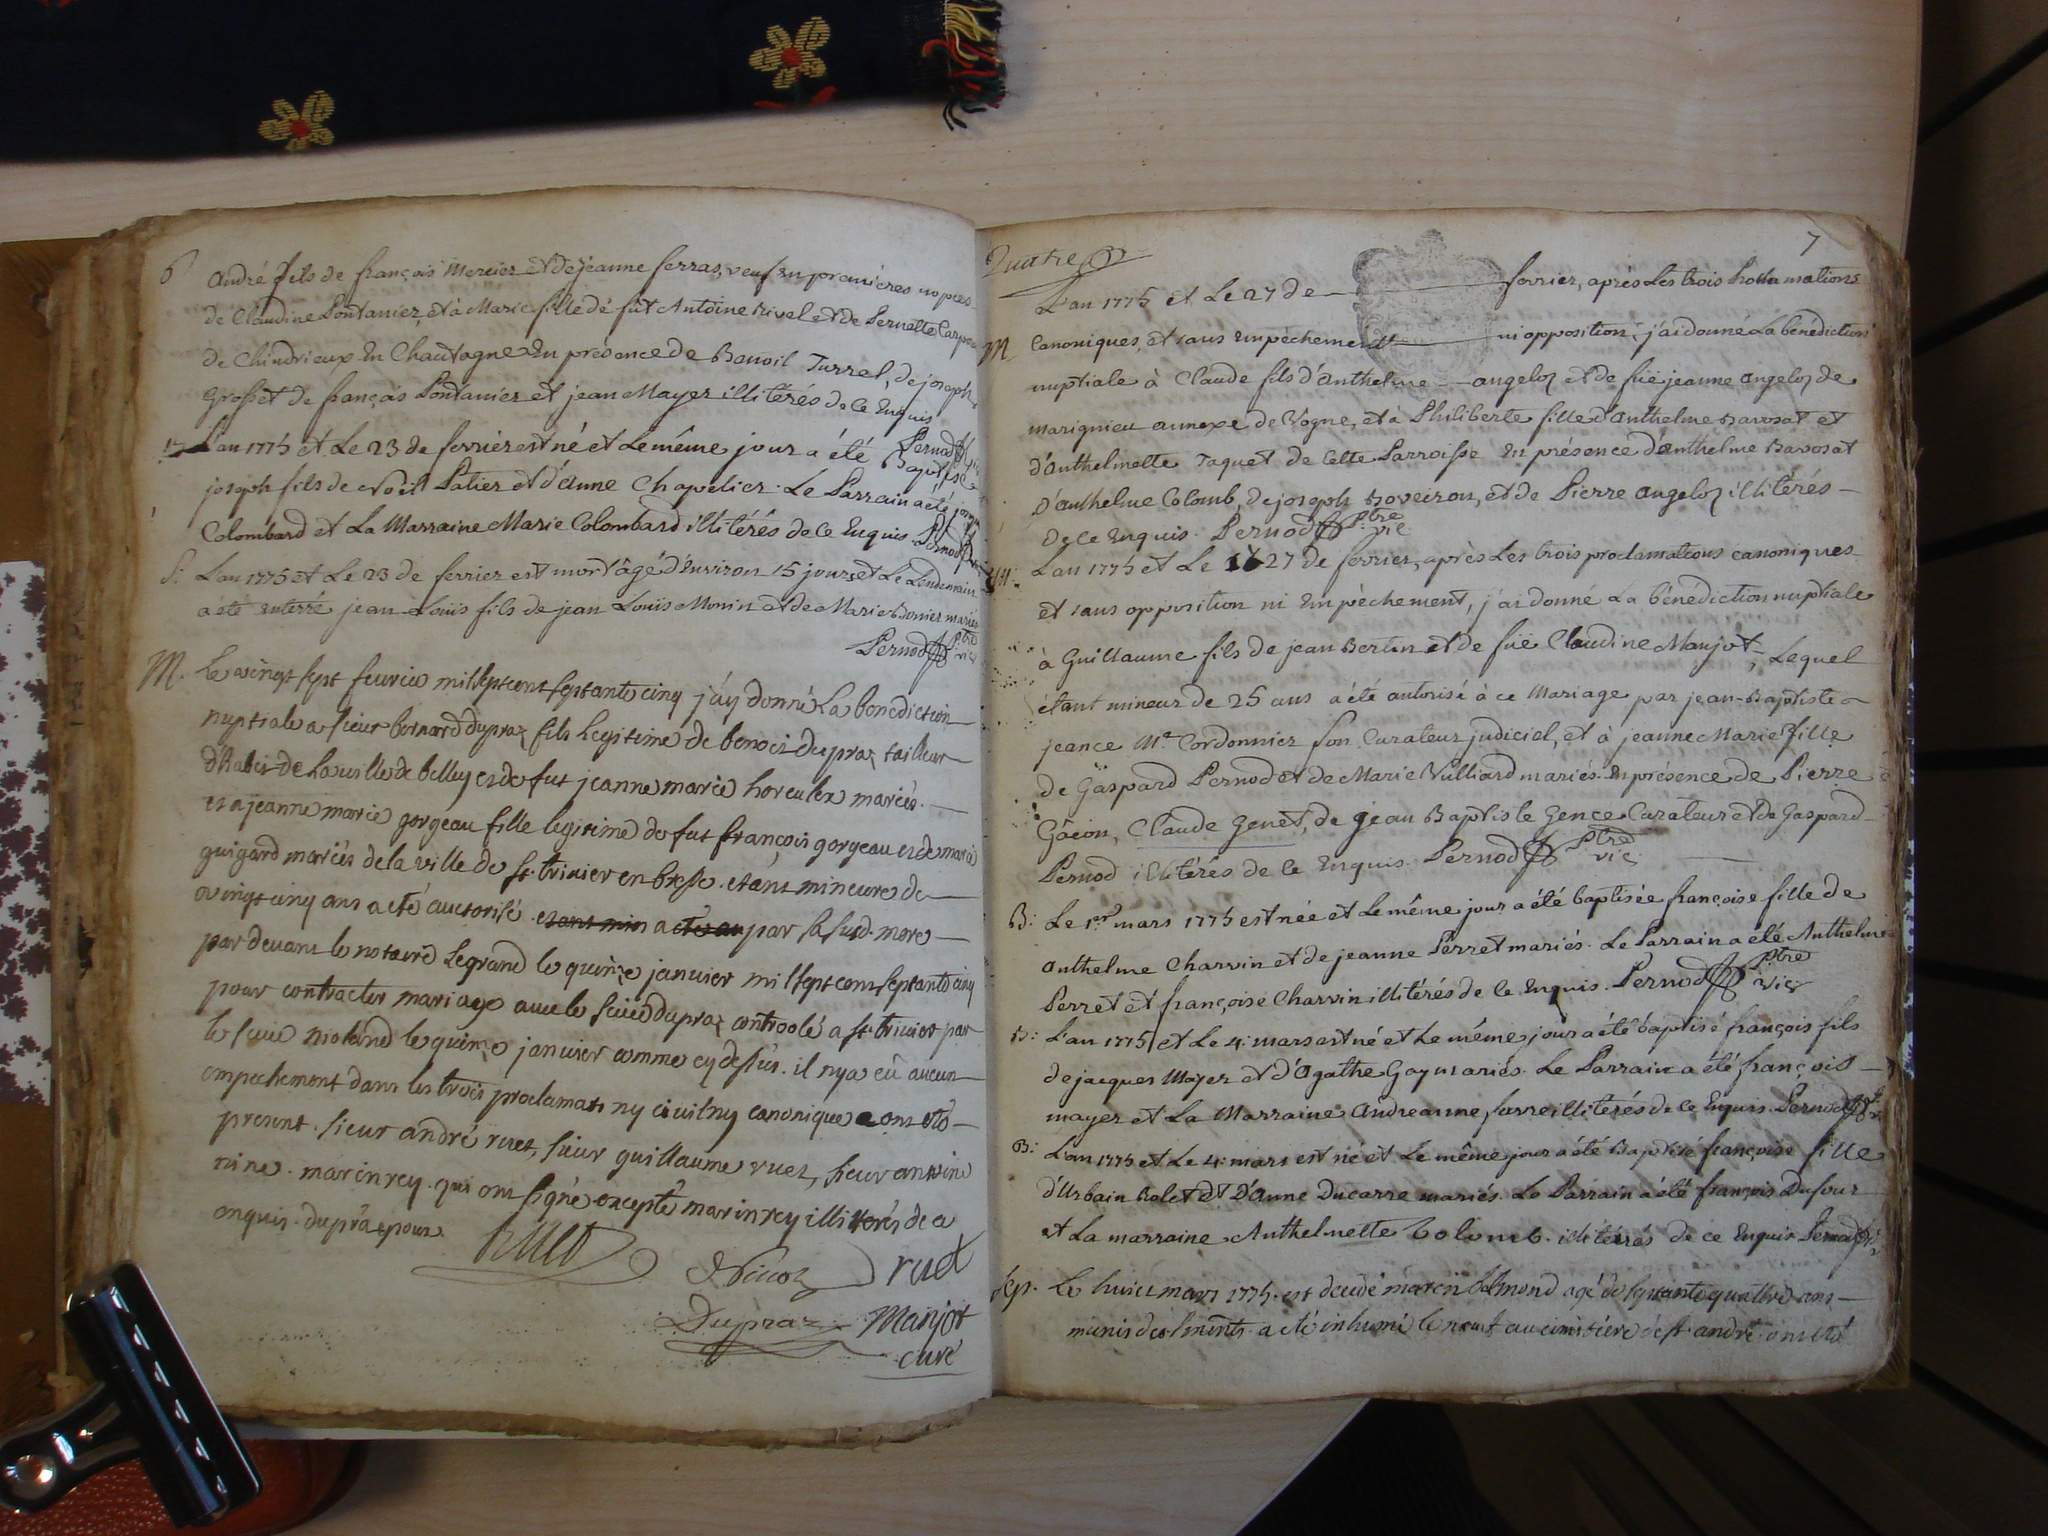 6
André fils de françois Mercier et de jeanne ferras, veuf en premières nopces
de Claudine Pontanier, et à Marie fille de fut Antoine Rivel et de Pernette
de Chindrieux En Chautagne En présence de Benoit Turrel, de joseph
Grosset de françois Pontanier et jean Mayer illitérés de ce Enquis
Pernod
L'an 1775 et Le 23 de ferrier est né et Le même jour a été Baptisé
joseph fils de Noël Patier et d'Anne Chapelier. Le Parrain a été
Colombard et La Marraine Marie Colombard illitérés de ce Enquis. Pernod
S: L'an 1775 et Le 23 de ferrier est mort âgé d'Environ 15 jours et Le Lendemain
a été enterré jean-Louïs fils de jean Louïs Monin et de Marie Bonier mariés
Pernod ptre vic
M. Le vingt sept feuvrier mil sept cent septante cinq j'ay donné La benediction
nuptiale a sieur bernard dupraz fils legitime de benoit dupraz tailleur
d'habis de la ville de belley et de fut jeanne marie mariés.
et a jeanne marie gorgeau fille legitime de fut françois gorgeau et de marie
guigard mariés de la ville de st. trivier en bresse. etant mineure de
vingt cinq ans a eté auctorisé etant min a eté au par sa susd. mere
par devant le notaire Legrand le quinze janvier mil sept cent septante cinq
pour contracter mariage avec le sieur dupraz controolé a st. trivier par
le sieur moland le quinze janvier comme cy dessus. il ny a eü aucun
empechement dans les trois proclamats ny civil ny canonique ont eté
present. sieur andré ruet, sieur guillaume ruet, sieur antoine
nine. marin rey. qui ont signé excepté marin rey illiterés de ce
enquis. dupraz epoux.
Ruet
ruet
Dupraz Manjot
curé
7
Quatre
L'an 1775 et Le 27 de ferrier, après Les trois Proclamations
M Canoniques, et sans Empêchement ni opposition, j'ai donné La bénédiction
nuptiale à Claude fils d'Anthelme angeloz et de füe jeanne angeloz de
marignieu annexe de Vogne, et à Philiberte fille d'Anthelme Bavosat et
d'Anthelmette Taquet de Cette Parroisse En présence d'anthelme Bavosat
d'anthelme Colomb, de joseph Boveiron, et de Pierre angeloz illitérés
de ce Enquis. Pernod Ptre vic
L'an 1775 et Le 27 de ferrier, après Les trois proclamations canoniques
et sans opposition ni Empêchement, j'ai donné La bénédiction nuptiale
à Guillaume fils de jean Bertin et de füe Claudine Manjot, Lequel
étant mineur de 25 ans a été autorisé à ce Mariage par jean-Baptiste
jeance Me. Cordonnier son Curateur judiciel, et à jeanne Marie fille
de Gaspard Pernod et de Marie Vulliard mariés. En présence de Pierre
Gâcon, Claude Genet, de jean Baptiste Gence Curateur et de Gaspard
Pernod illitérés de ce Enquis. Pernod Ptre vic
B: Le 1er mars 1775 est née et Le même jour a été baptisée françoise fille de
Anthelme Charvin et de jeanne Perret mariés. Le Parrain a été Anthelme
Perret et françoise Charvin illitérés de ce Enquis. Pernod Ptre vic
B: L'an 1775 et Le 4: mars est né et Le même jour a été baptisé françois fils
de jacques Mayer et d'Agathe Gay mariés. Le Parrain a été françois
mayer et La Marraine Andreanne illitérés de ce Enquis. Pernod
B: L'an 1775 et Le 4: mars est né et Le même jour a été Baptisé françoise fille
d'Urbain Bolet et D'Anne Ducarre mariés. Le Parrain a été françois Dufour
et La marraine Anthelmette Colomb. illitérés de ce Enquis Pernod
Sep. Le huict mars 1775. est decedé agé de septante quattre ans
munis des a eté inhumé le neuf au cimitiere de st. andré. ont eté